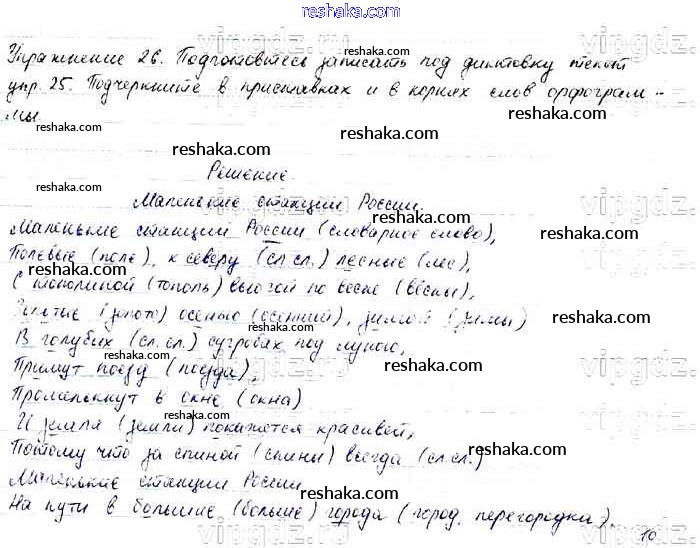 reshaka.com
Упражнение 26. Подготовьтесь записать под диктовку текст
упр. 25. Подчеркните в приставках и в корнях слов орфограм-
мы
Решение.
Маленькие станции России.
Маленькие станции России (словарное слово),
Полевые (поле), к северу (сл.сл.) лесные (лес),
С тополиной (тополь) вьюгой по весне (вёсны),
Золотые (золото) осенью (осенний), зимой (зимы)
В голубых (сл.сл.) сугробах под луною,
Примут поезд (поезда),
Промелькнут в окне (окна)
И земля (земли) покажется красивей,
Потому что за спиной (спины) всегда (сл.сл.)
Маленькие станции России
На пути в большие (больше) города (город, перегородка).
10
reshaka.com